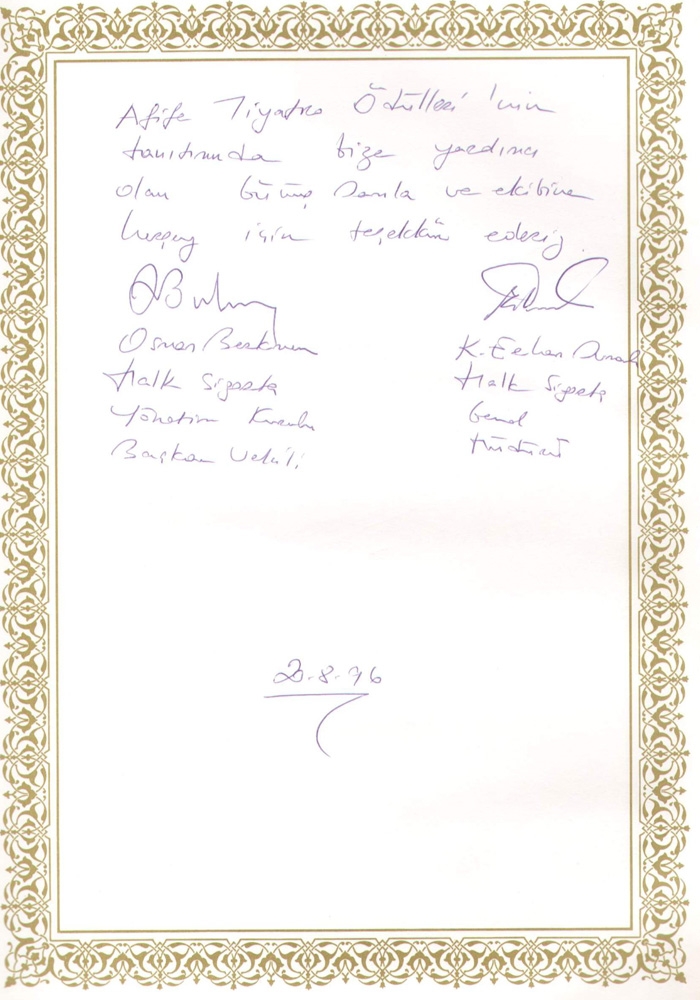 Afife Tiyatro Ödülleri'nin
tanıtımında bize yardımcı
olan ve ekibine
herşey için teşekkür ederiz.
Osman
Halk Sigorta
Yönetim Kurulu
Başkan Vekili
K. Erhan
Halk Sigorta
Genel
Müdürü
20-8-96